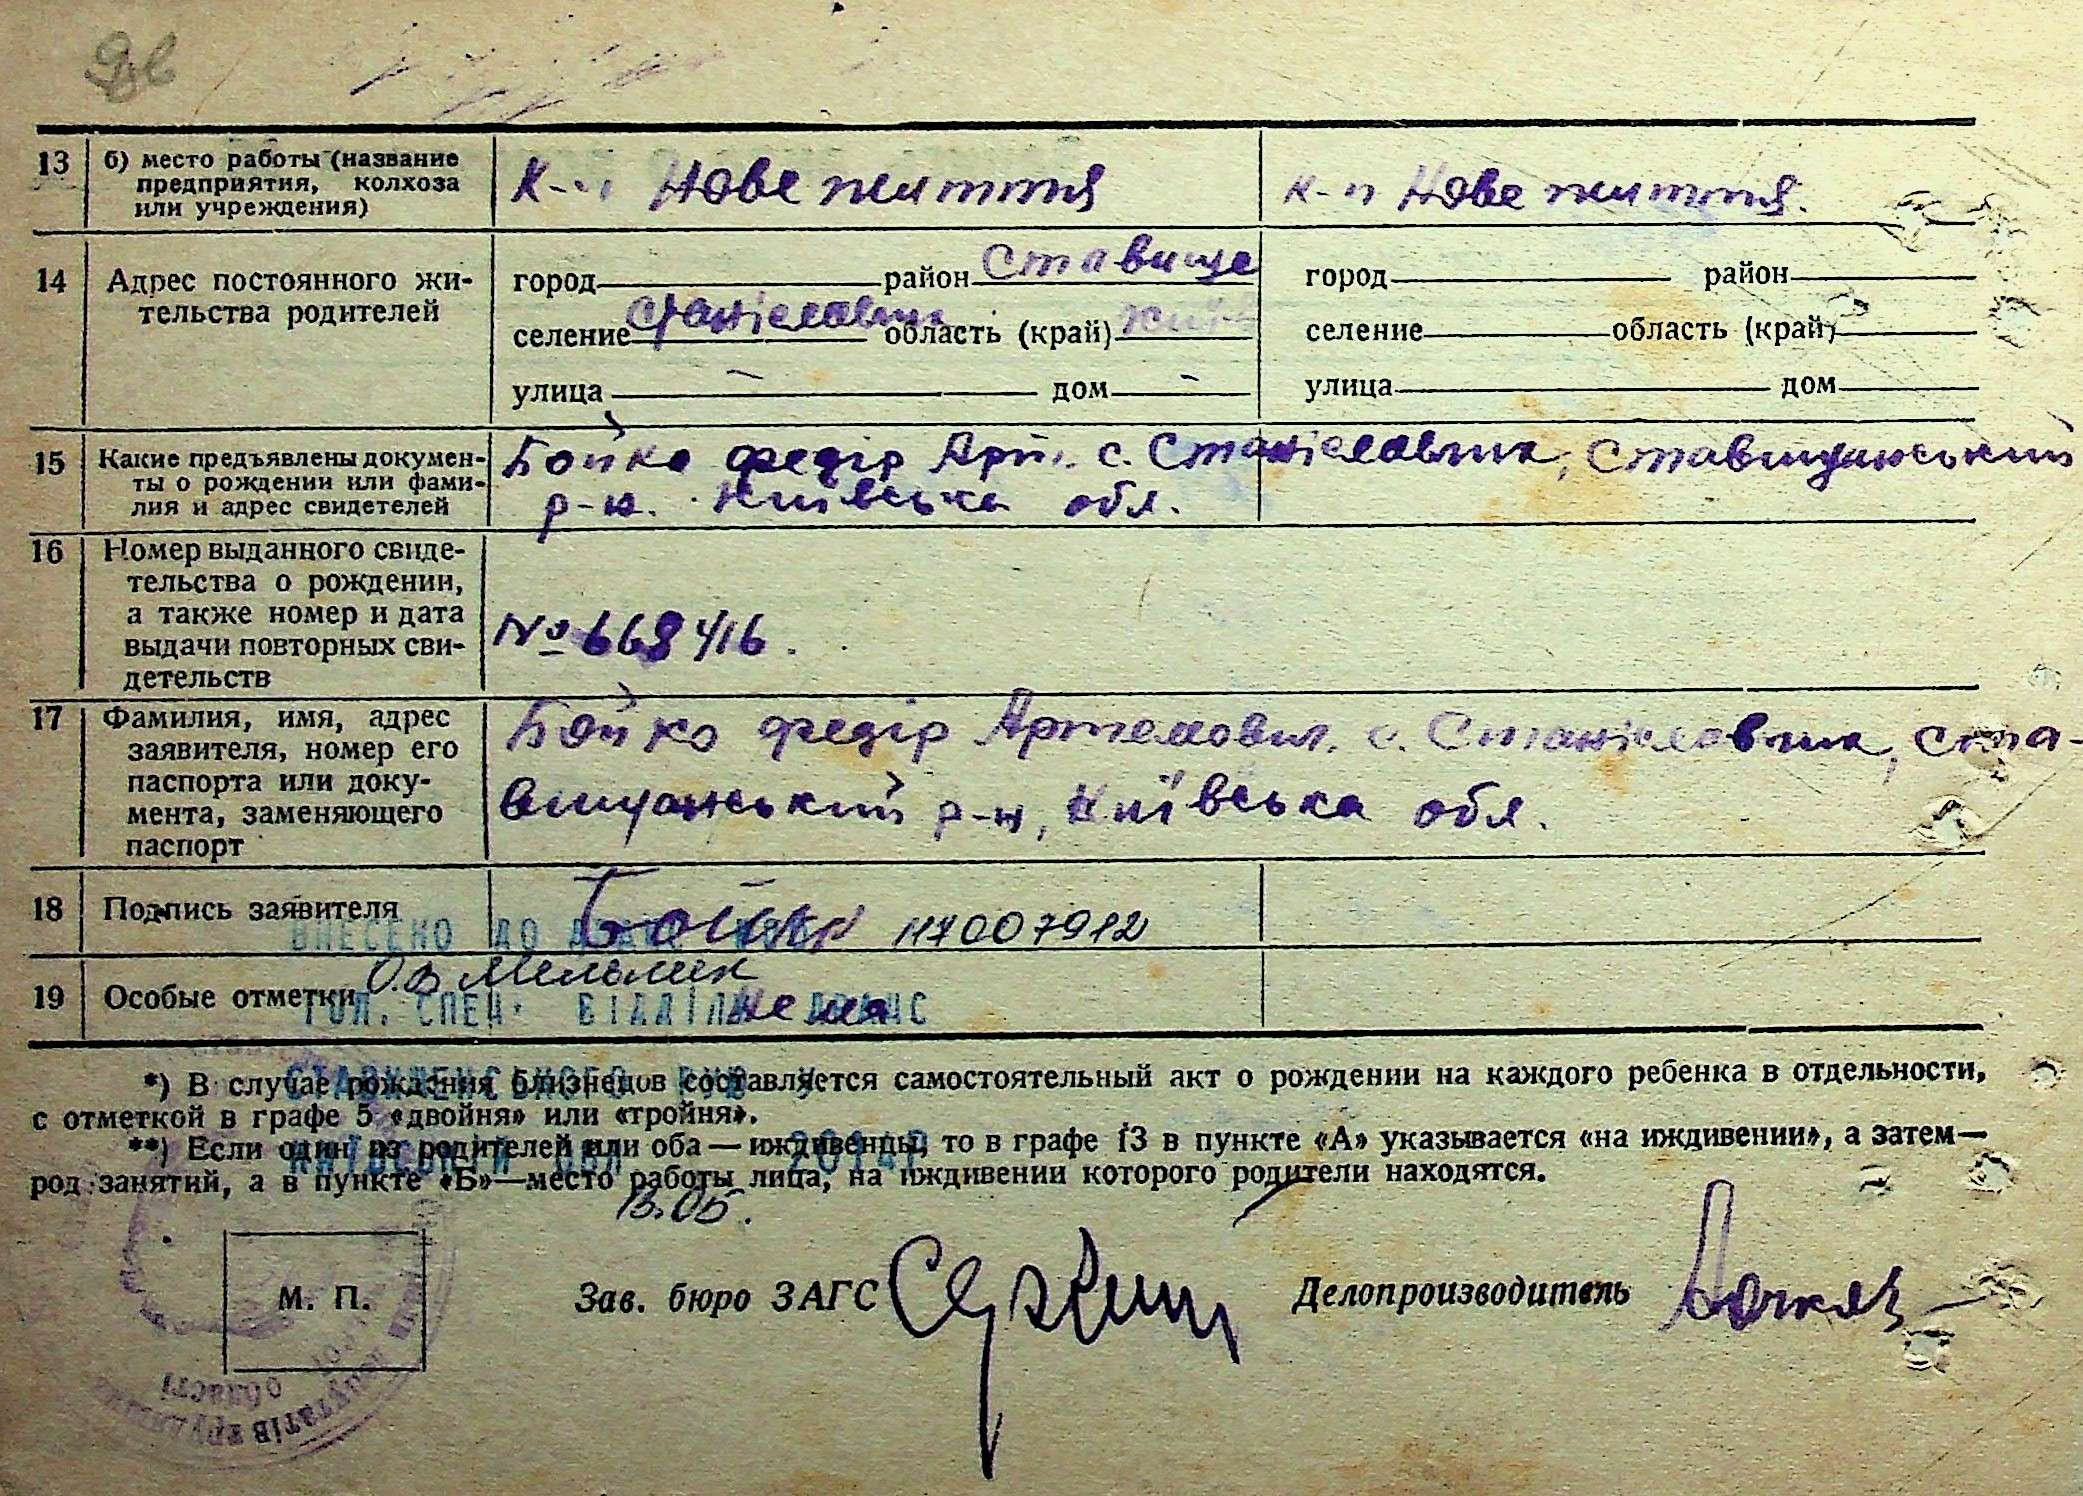 13 б) место работы (название предприятия, колхоза или учреждения) Нове життя к-п Нове життя.
14 Адрес постоянного жительства родителей
город район Ставище город район
селение Станіславчик область (край) Київ селение область (край)
улица — дом — улица дом
15 Какие предъявлены документы о рождении или фамилия и адрес свидетелей
Бойко Федір Арт. с. Станіславчик, Ставищанський
р-н. Київська обл.
16 Номер выданного свидетельства о рождении, а также номер и дата выдачи повторных свидетельств
№ 668416.
17 Фамилия, имя, адрес заявителя, номер его паспорта или документа, заменяющего паспорт
Бойко Федір Артемович. с. Станіславчик, Ста-
вищанський р-н, Київська обл.
18 Подпись заявителя
ВНЕСЕНО ДО 007912
19 Особые отметки О.В Мельник
ГОЛ. СПЕЦ. ВІДДІЛУ нема
*) В случае рождения близнецов составляется самостоятельный акт о рождении на каждого ребенка в отдельности,
с отметкой в графе 5 «двойня» или «тройня».
**) Если один из родителей или оба — иждивенцы, то в графе 13 в пункте «А» указывается «на иждивении», а затем —
род занятий, а в пункте «Б» — место работы лица, на иждивении которого родители находятся.
13.05.
М. П. Зав. бюро ЗАГС Делопроизводитель
області